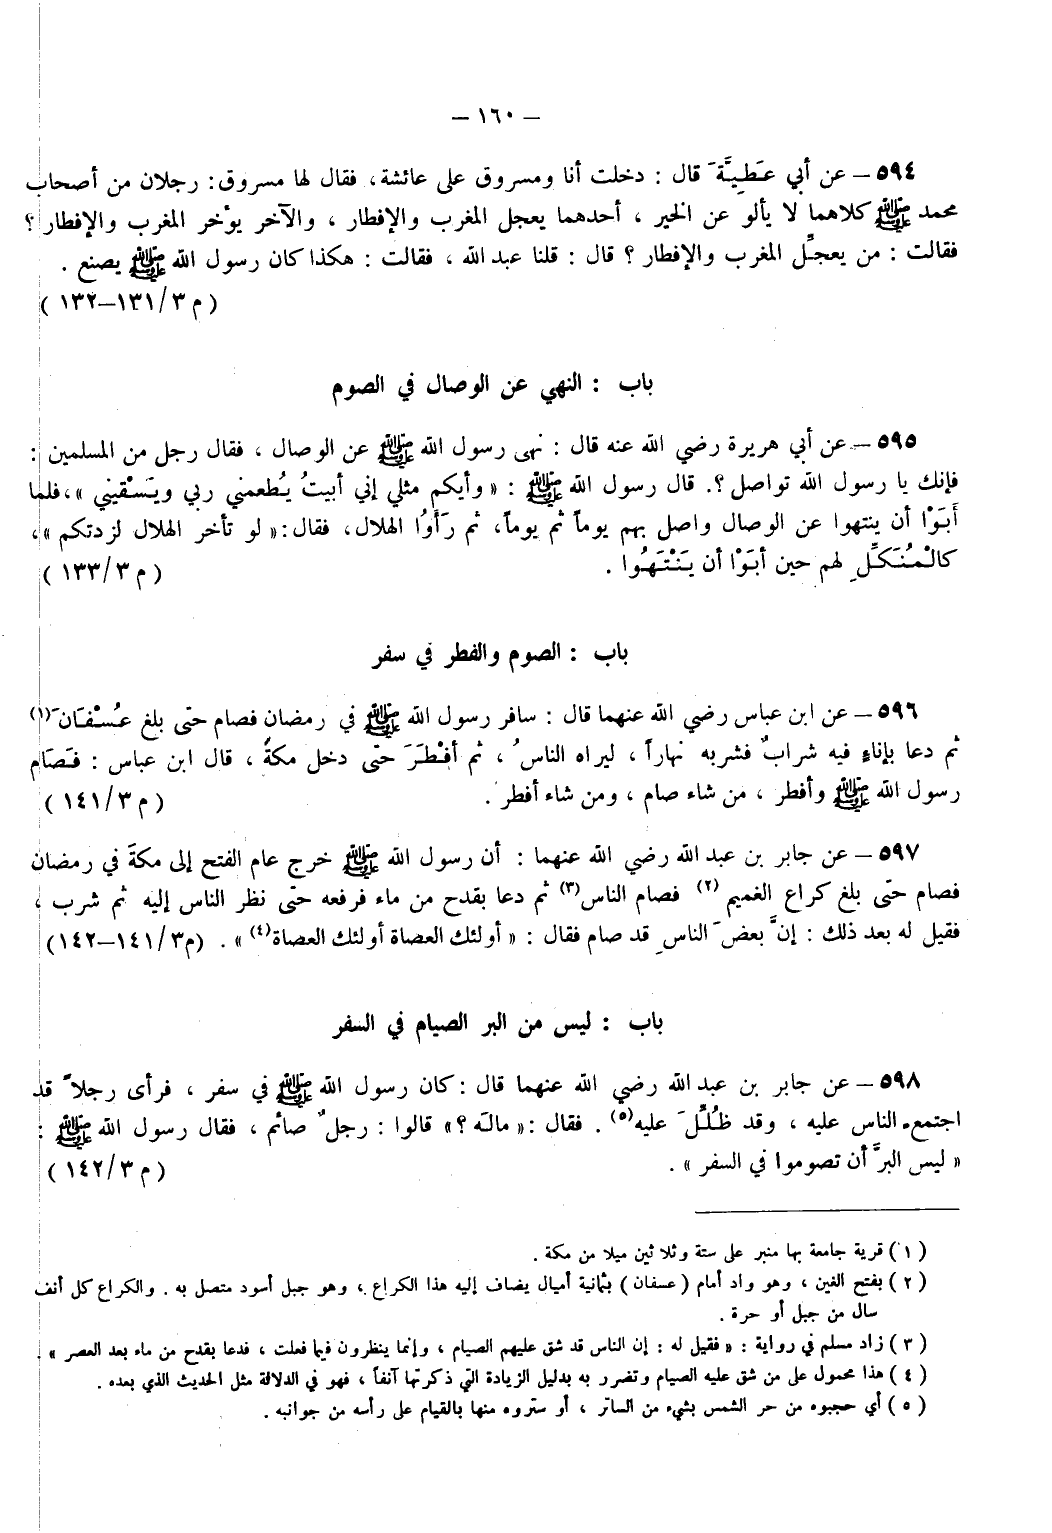 — ١٦٠ —
٥٩٤ – عن أبي عَطِيَّةَ قال : دخلت أنا ومسروق على عائشة، فقال لها مسروق: رجلان من أصحاب
محمد ﷺ كلاهما لا يألو عن الخير ، أحدهما يعجل المغرب والإفطار ، والآخر يؤخر المغرب والإفطار ؟
فقالت : من يعجِّل المغرب والإفطار ؟ قال : قلنا عبد الله ، فقالت : هكذا كان رسول الله ﷺ يصنع .
( م ٣/ ١٣١–١٣٢ )
باب : النهي عن الوصال في الصوم
٥٩٥ – عن أبي هريرة رضي الله عنه قال : نهى رسول الله ﷺ عن الوصال ، فقال رجل من المسلمين :
فإنك يا رسول الله تواصل ؟. قال رسول الله ﷺ : « وأيكم مثلي إني أبيتُ يُطعمني ربي ويَسْقيني »، فلما
أَبَوْا أن ينتهوا عن الوصال واصل بهم يوماً ثم يوماً، ثم رَأَوُا الهلال، فقال: « لو تأخر الهلال لزدتكم »،
كالْمُنَكِّلِ لهم حين أبَوْا أن يَنْتَهُوا .
( م ٣/ ١٣٣ )
باب : الصوم والفطر في سفر
٥٩٦ – عن ابن عباس رضي الله عنهما قال : سافر رسول الله ﷺ في رمضان فصام حتى بلغ عُسْفَانَ (١)
ثم دعا بإناءٍ فيه شرابٌ فشربه نهاراً ، ليراه الناسُ ، ثم أفْطَرَ حتى دخل مكةَ ، قال ابن عباس : فَصَام
رسول الله ﷺ وأفطر ، من شاء صام ، ومن شاء أفطر .
( م ٣/ ١٤١ )
٥٩٧ – عن جابر بن عبد الله رضي الله عنهما : أن رسول الله ﷺ خرج عام الفتح إلى مكةَ في رمضان
فصام حتى بلغ كراع الغميم (٢) فصام الناس (٣) ثم دعا بقدح من ماء فرفعه حتى نظر الناس إليه ثم شرب ،
فقيل له بعد ذلك : إنَّ بعضَ الناسِ قد صام فقال : « أولئك العصاة أولئك العصاة (٤) » . (م ٣/ ١٤١–١٤٢)
باب : ليس من البر الصيام في السفر
٥٩٨ – عن جابر بن عبد الله رضي الله عنهما قال : كان رسول الله ﷺ في سفر ، فرأى رجلاً قد
اجتمع الناس عليه ، وقد ظُلِّلَ عليه (٥) . فقال : « مالَه ؟ » قالوا : رجلٌ صائم ، فقال رسول الله ﷺ :
« ليس البرَّ أن تصوموا في السفر » .
( م ٣/ ١٤٢ )
( ١ ) قرية جامعة بها منبر على ستة وثلاثين ميلا من مكة .
( ٢ ) بفتح الغين ، وهو واد أمام (عسفان) بثمانية أميال يضاف إليه هذا الكراع ، وهو جبل أسود متصل به . والكراع كل أنف
سال من جبل أو حرة .
( ٣ ) زاد مسلم في رواية : « فقيل له : إن الناس قد شق عليهم الصيام ، وإنما ينظرون فيما فعلت ، فدعا بقدح من ماء بعد العصر » .
( ٤ ) هذا محمول على من شق عليه الصيام وتضرر به بدليل الزيادة التي ذكرتها آنفاً ، فهو في الدلالة مثل الحديث الذي بعده .
( ٥ ) أي حجبوه من حر الشمس بشيء من الساتر ، أو ستروه منها بالقيام على رأسه من جوانبه .